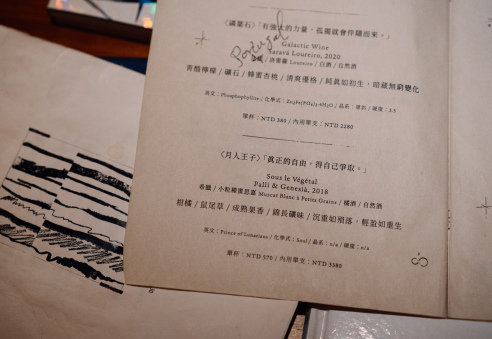 〈磷葉石〉「有強大的力量，孤獨就會伴隨而來。」
Portugal
Galactic Wine
Saravá Loureiro, 2020
洛雷羅 Loureiro / 白酒 / 自然酒
青酸檸檬 / 礦石 / 蜂蜜杏桃 / 清爽優格 / 純真如初生，暗藏無窮變化
英文：Phosphophyllite / 化學式：Zn₂Fe(PO₄)₂·4H₂O / 晶系：單斜 / 硬度：3.5
單杯：NTD 380 / 內用單支：NTD 2280
〈月人王子〉「真正的自由，得自己爭取。」
Sous le Végétal
Palli & Genesià, 2018
希臘 / 小粒蜜思嘉 Muscat Blanc à Petits Grains / 橘酒 / 自然酒
柑橘 / 鼠尾草 / 成熟果香 / 綿長礦味 / 沉重如殞落，輕盈如重生
英文：Prince of Lunarians / 化學式：Soul / 晶系：n/a / 硬度：n/a
單杯：NTD 570 / 內用單支：NTD 3380